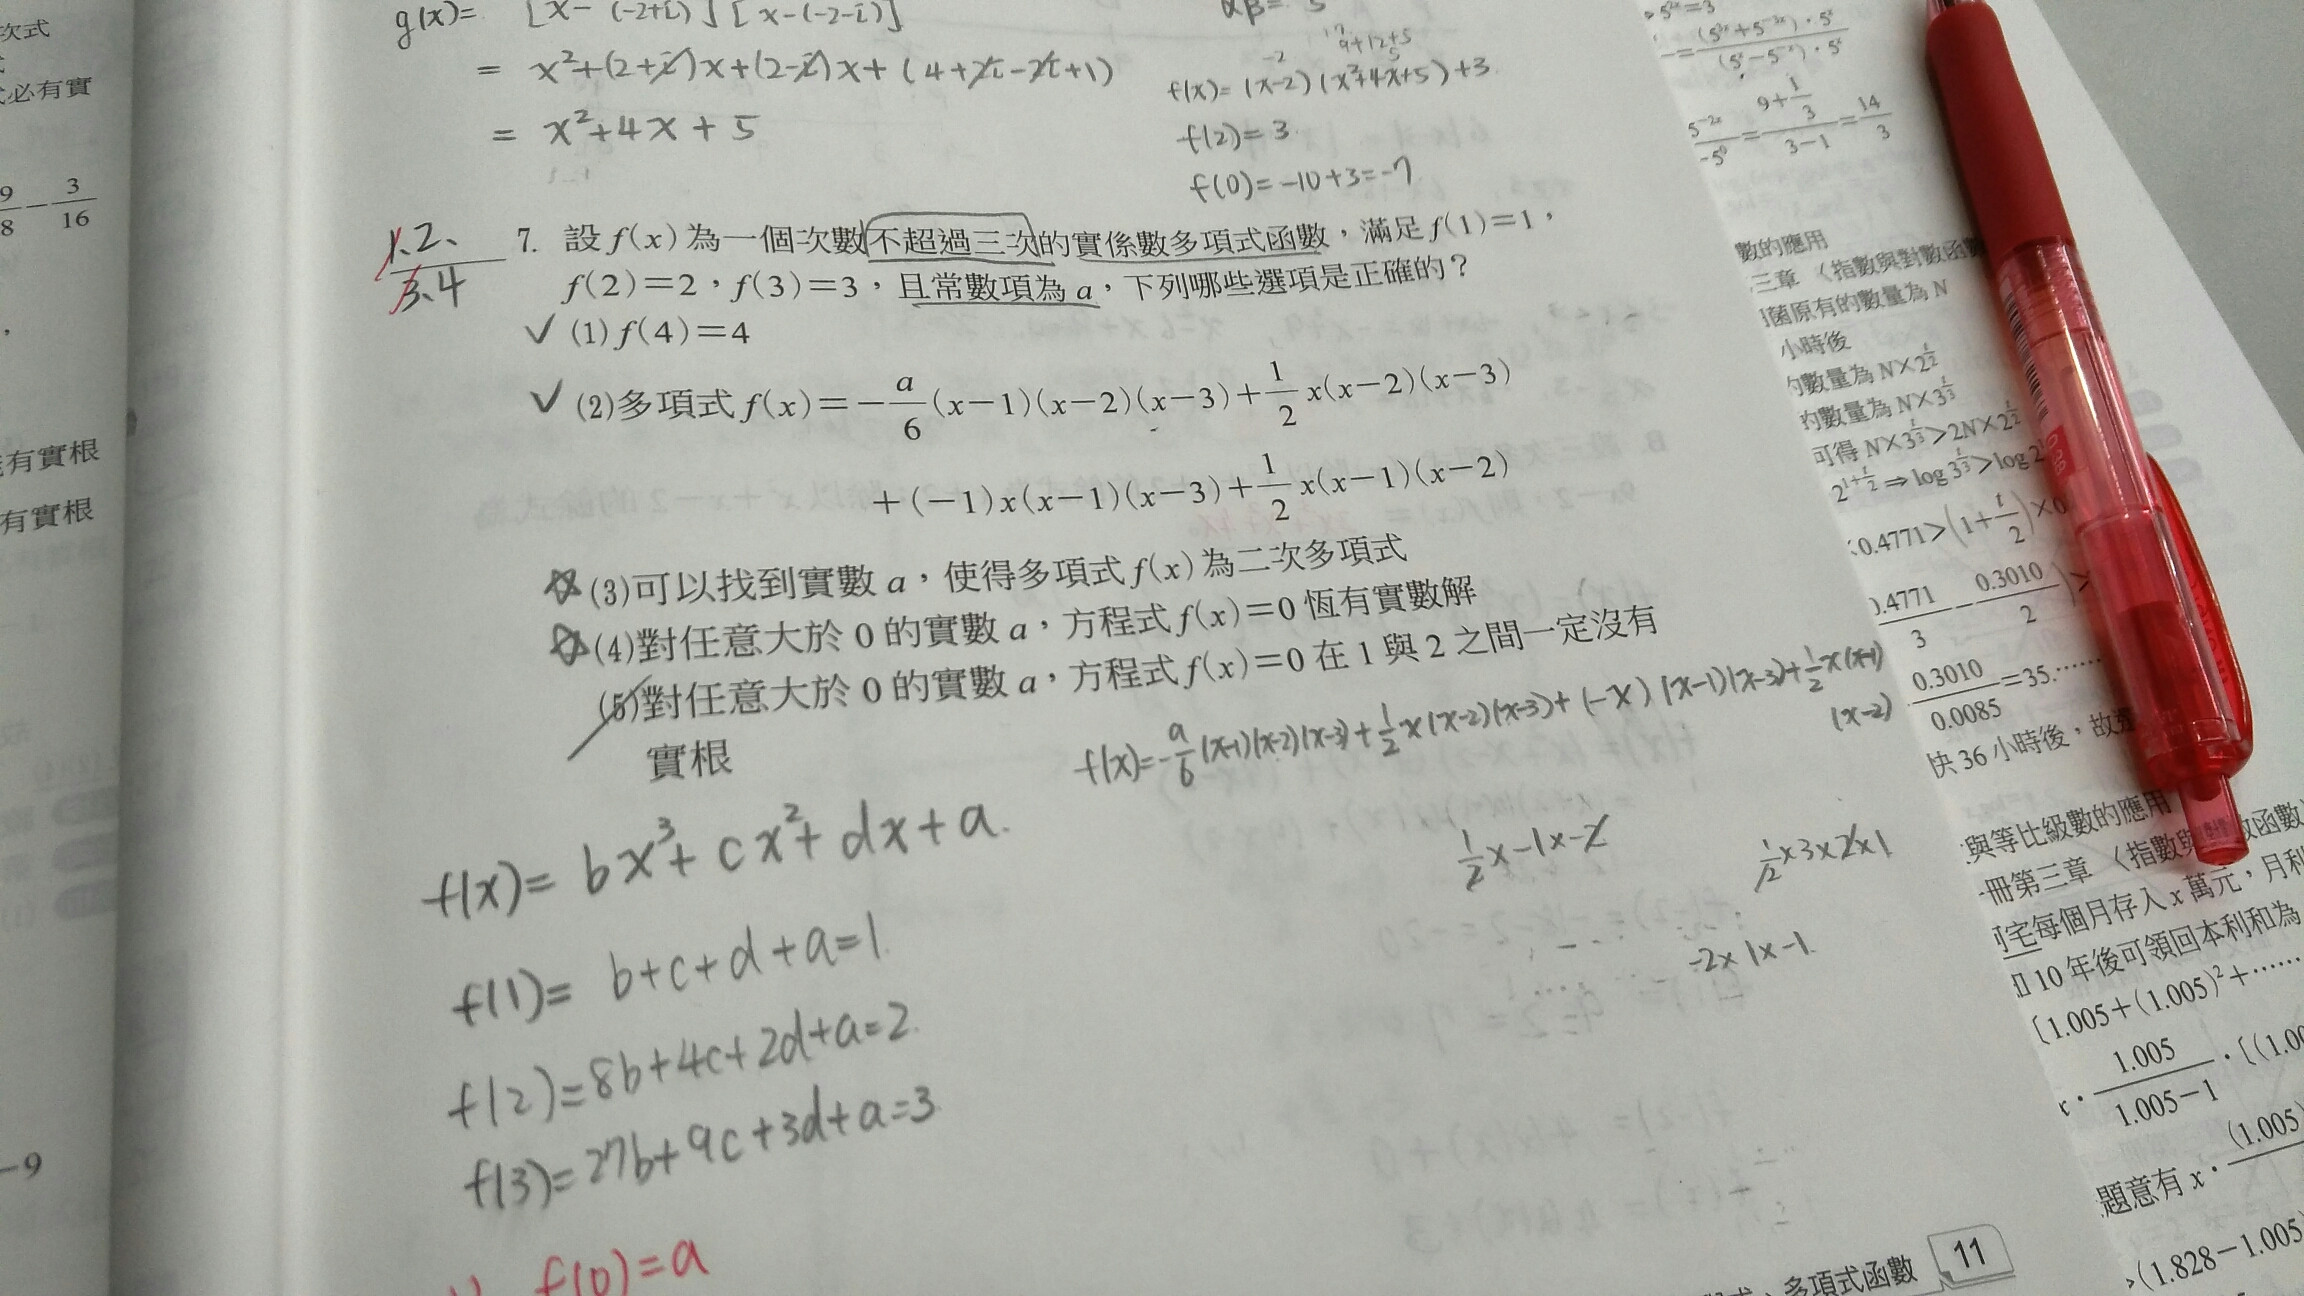 次式
式必有實
9/8 − 3/16
有實根
有實根
−9
g(x)= [x-(-2+i)][x-(-2-i)]
= x²+(2+i)x+(2-i)x+(4+2i-2i+1)
= x²+4x+5
αβ= 5
9+12+5
-2
5
f(x)=(x-2)(x²+4x+5)+3
f(2)=3
f(0)=-10+3=-7
1.2、
3.4
7. 設 f(x) 為一個次數不超過三次的實係數多項式函數，滿足 f(1)=1，
f(2)=2，f(3)=3，且常數項為 a，下列哪些選項是正確的？
✓ (1) f(4)=4
✓ (2)多項式 f(x)=−a/6(x−1)(x−2)(x−3)+1/2 x(x−2)(x−3)
+(−1)x(x−1)(x−3)+1/2 x(x−1)(x−2)
(3)可以找到實數 a，使得多項式 f(x) 為二次多項式
(4)對任意大於 0 的實數 a，方程式 f(x)=0 恆有實數解
(5)對任意大於 0 的實數 a，方程式 f(x)=0 在 1 與 2 之間一定沒有
實根
f(x)=-a/6(x-1)(x-2)(x-3)+1/2x(x-2)(x-3)+(-x)(x-1)(x-3)+1/2x(x-1)
(x-2)
f(x)= bx³+cx²+dx+a.
1/2x-1x-2
1/2x3x2x1
-2x1x-1
f(1)= b+c+d+a=1
f(2)=8b+4c+2d+a=2
f(3)=27b+9c+3d+a=3
f(0)=a
多項式函數 11
5²ˣ=3
=(5³ˣ+5⁻³ˣ)·5ˣ/(5ˣ−5⁻ˣ)·5ˣ
5⁻²ˣ/−5⁰=(9+1/3)/(3−1)=14/3
數的應用
三章 〈指數與對數函數
菌原有的數量為 N
小時後
的數量為 N×2^(t/2)
的數量為 N×3^(t/3)
可得 N×3^(t/3)>2N×2^(t/2)
2^(1+t/2) ⇒ log 3^(t/3)>log 2
0.4771>(1+t/2)×0
0.4771/3 − 0.3010/2)>
0.3010/0.0085=35.……
快 36 小時後，故
與等比級數的應用
冊第三章 〈指數與 數函數
宅每個月存入 x 萬元，月利
10 年後可領回本利和為
[1.005+(1.005)²+……
x · 1.005/1.005−1 · [(1.00
題意有 x · (1.005)
(1.828−1.005)